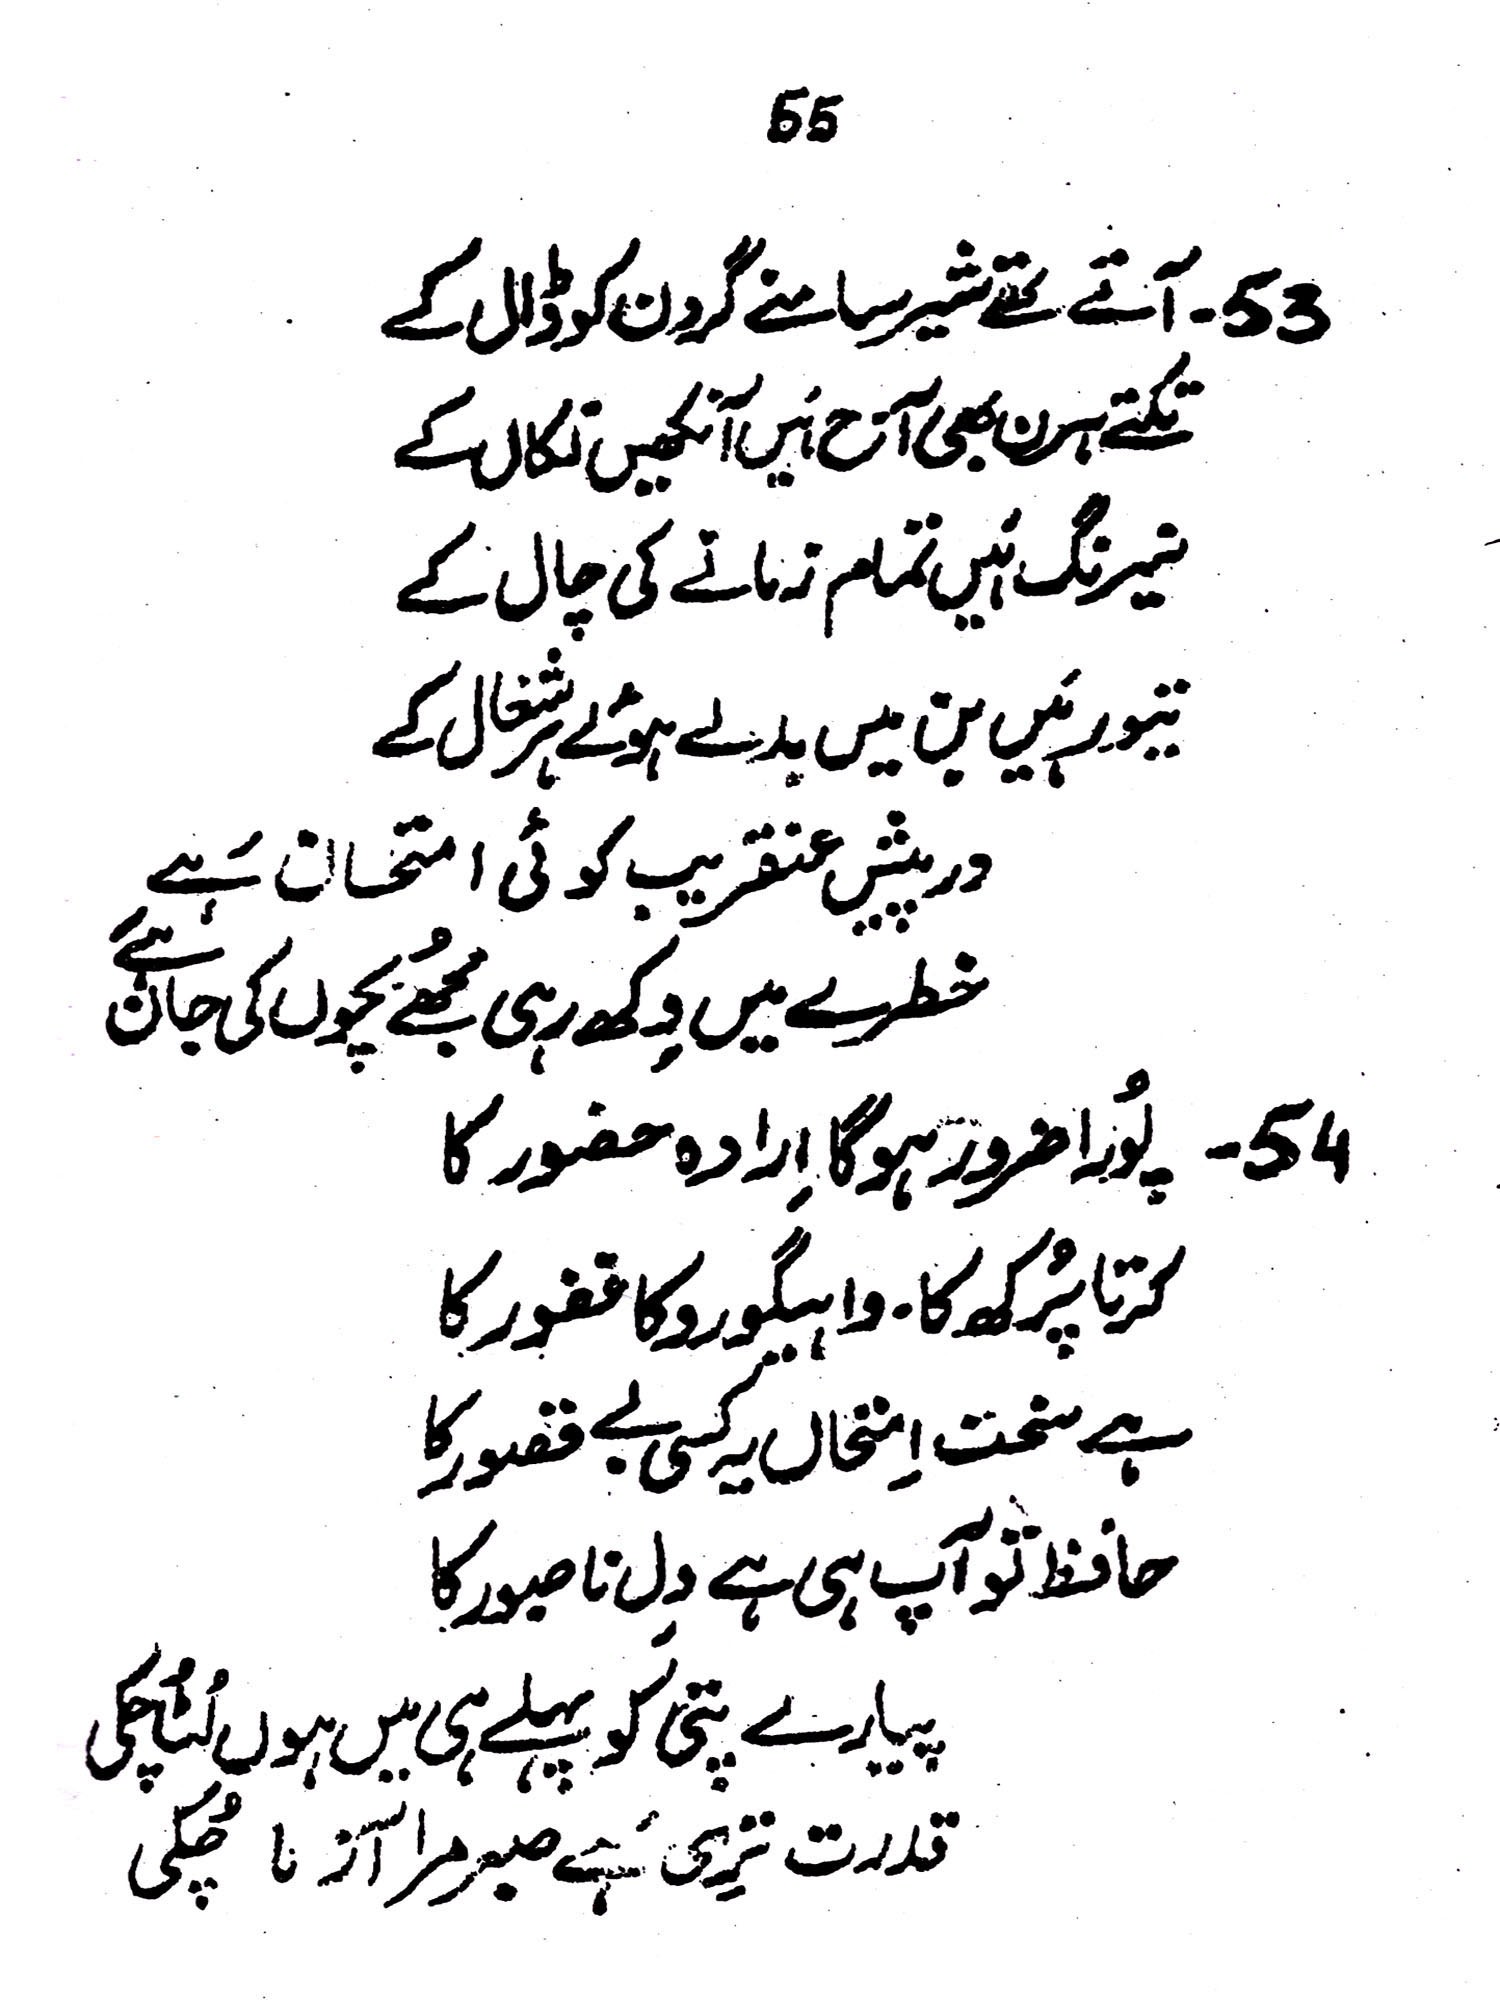 55
53- آتے تھے شیر سامنے گردن کو ڈال کے
تکتے ہرن بھی آج ہَیں آنکھیں نکال کے
نیرنگ ہَیں تمام زمانے کی چال کے
تیور ہَیں بن میں بدلے ہوئے ہر شغال کے
درپیش عنقریب کوئی امتحان ہَے
خطرے میں دِکھ رہی مجھے بچوں کی جان ہَے
54- پُورا ضرور ہوگا اِرادہ حضور کا
کرتا پُرکھ کا۔ واہیگورو کا غفور کا
ہے سخت اِمتحاں یہ کسی بے قصور کا
حافظ تُو آپ ہی ہے دِلِ ناصبور کا
پیارے پتی کو پہلے ہی میں ہوں لُٹا چُکی
قدرت تِری ہَے صبر مرا آزما چُکی